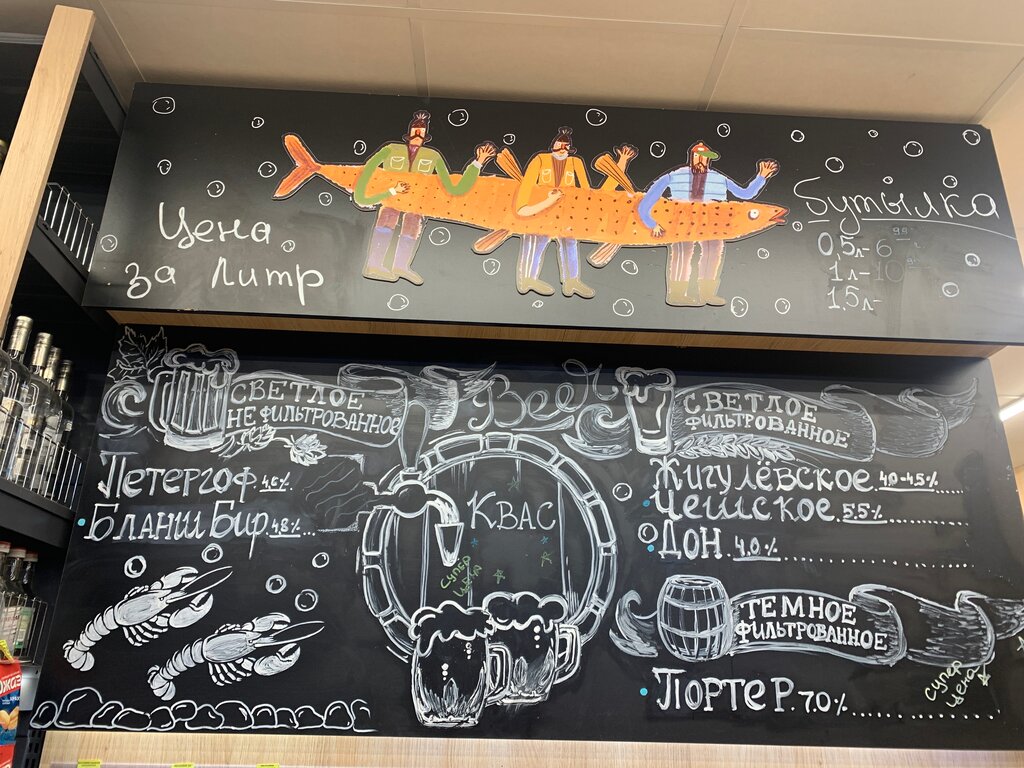 Цена
за литр
Бутылка
0,5л- 6
1л- 10
1,5л-
СВЕТЛОЕ
НЕФИЛЬТРОВАННОЕ
Петергоф 4,6%
Бланш Бир 4,8%
Beer
Квас
СУПЕР
ЦЕНА
СВЕТЛОЕ
ФИЛЬТРОВАННОЕ
Жигулёвское 4,0-4,5%
Чешское 5,5%
Дон 4,0%
ТЕМНОЕ
ФИЛЬТРОВАННОЕ
Портер 7.0%
СУПЕР
ЦЕНА